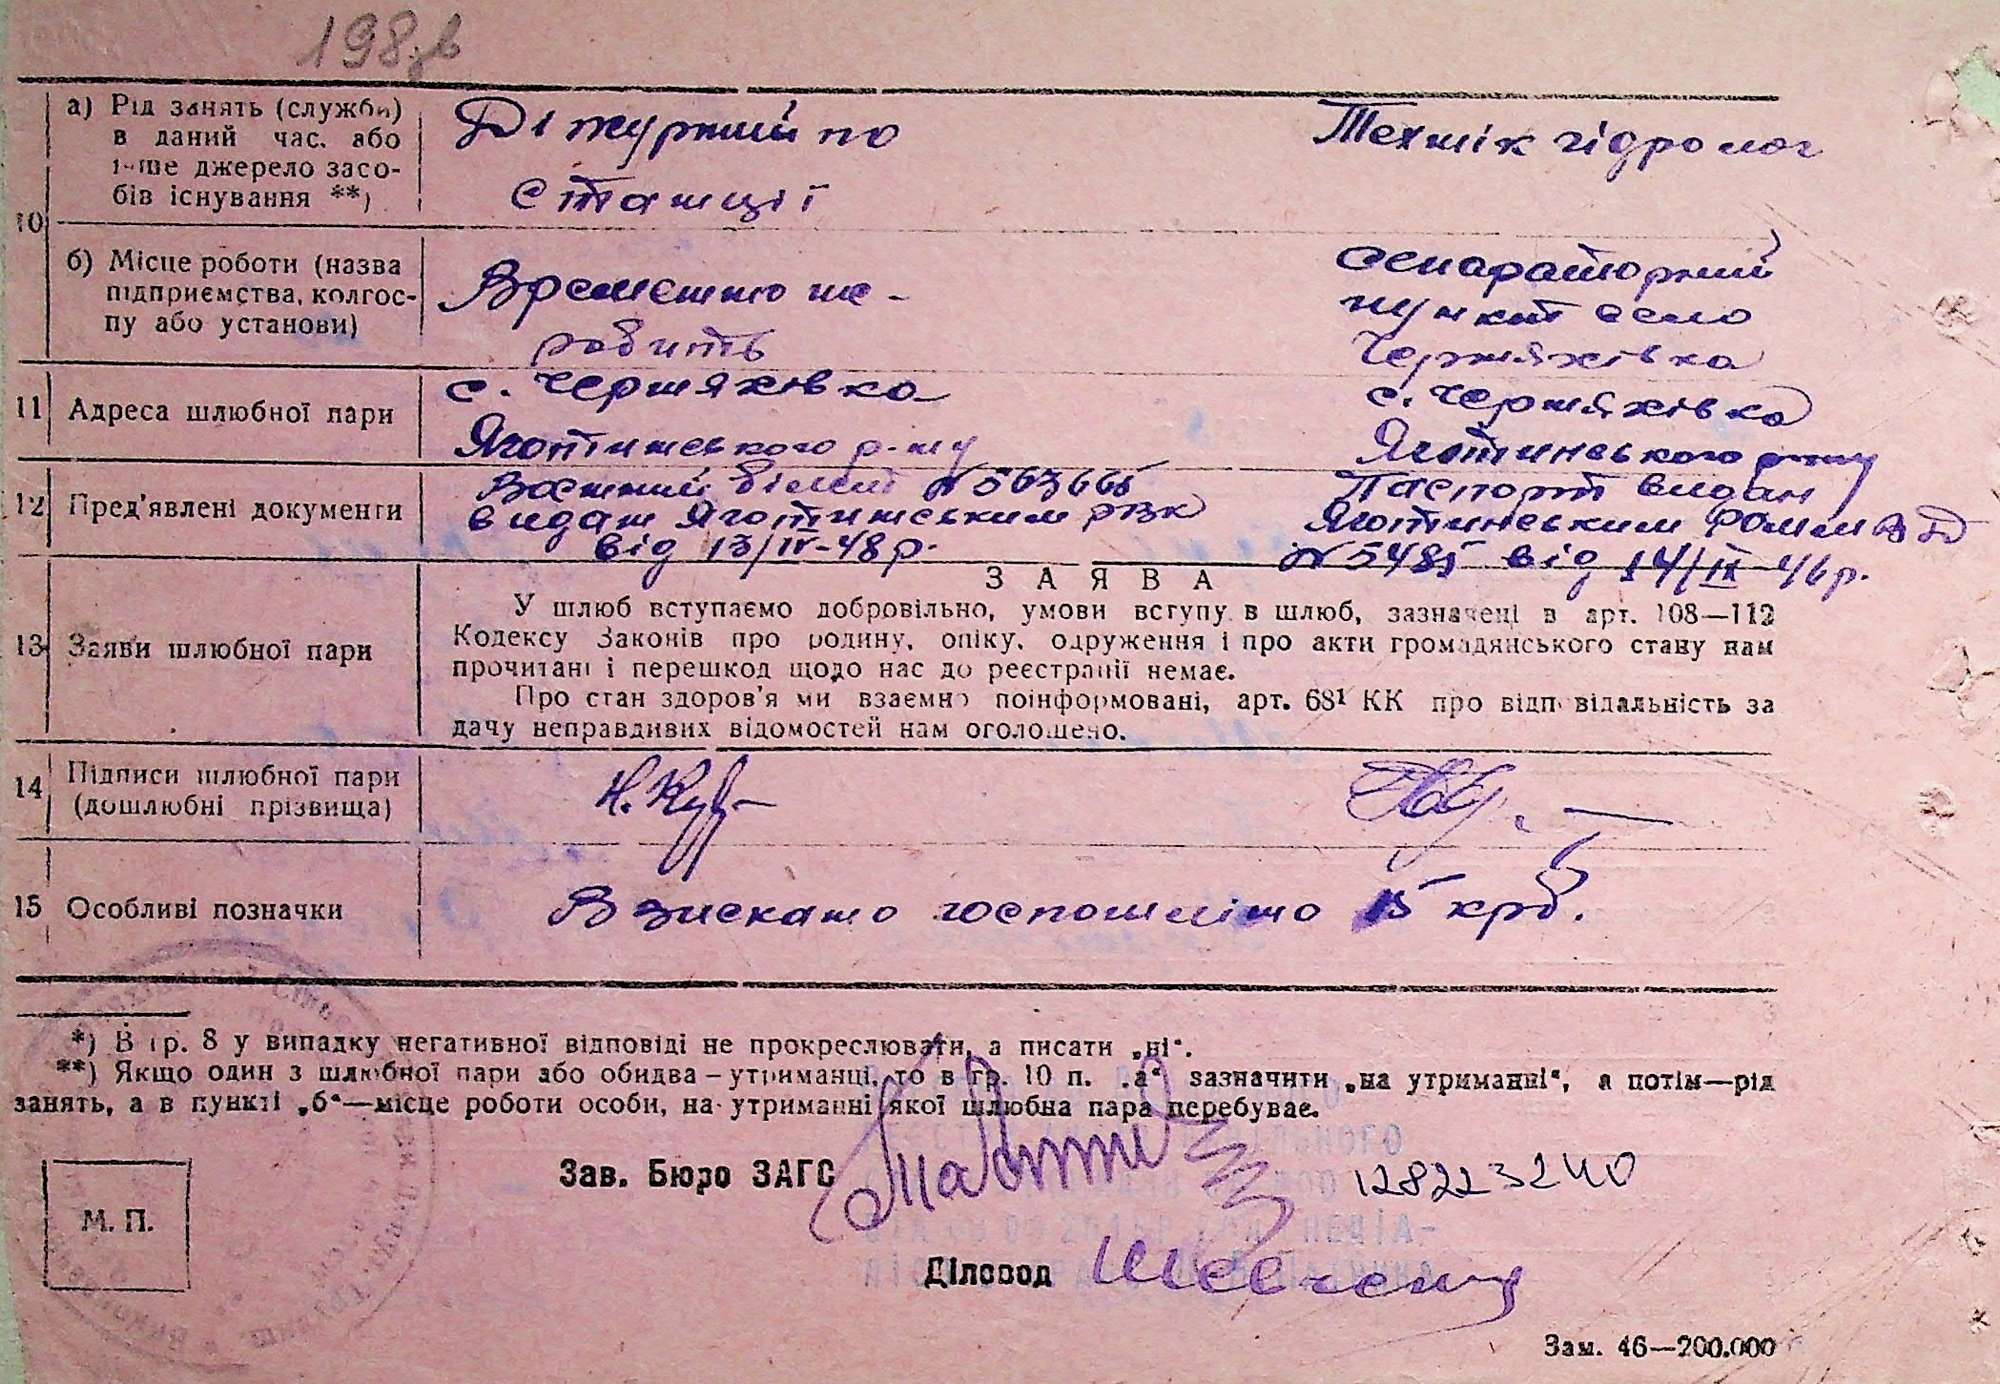 198 зв
10
а) Рід занять (служби)
в даний час. або
інше джерело засо-
бів існування **)
Діжурний по
станції
Технік гідролог
б) Місце роботи (назва
підприємства, колгос-
пу або установи)
Времєнно не -
робить
Сепараторний
пункт село
Черняхівка
11
Адреса шлюбної пари
с. Черняхівка
Яготинського р-ну
с. Черняхівка
Яготинського р-ну
12
Пред'явлені документи
Воєнний білет № 563665
видан Яготинським РВК
від 13/IV-48 р.
Паспорт видан
Яготинським
№ 5485 від 14/IX-46 р.
13
Заяви шлюбної пари
ЗАЯВА
У шлюб вступаємо добровільно, умови вступу в шлюб, зазначені в арт. 108—112
Кодексу Законів про родину, опіку, одруження і про акти громадянського стану нам
прочитані і перешкод щодо нас до реєстрації немає.
Про стан здоров'я ми взаємно поінформовані, арт. 68¹ КК про відповідальність за
дачу неправдивих відомостей нам оголошено.
14
Підписи шлюбної пари
(дошлюбні прізвища)
15
Особливі позначки
Взискано госпошліно 15 крб.
*) В гр. 8 у випадку негативної відповіді не прокреслювати, а писати „ні“.
**) Якщо один з шлюбної пари або обидва – утриманці, то в гр. 10 п. „а“ зазначити „на утриманні“, а потім—рід
занять, а в пункті „б“—місце роботи особи, на утриманні якої шлюбна пара перебуває.
Зав. Бюро ЗАГС
128223240
М. П.
Діловод Шевченко
Зам. 46—200.000